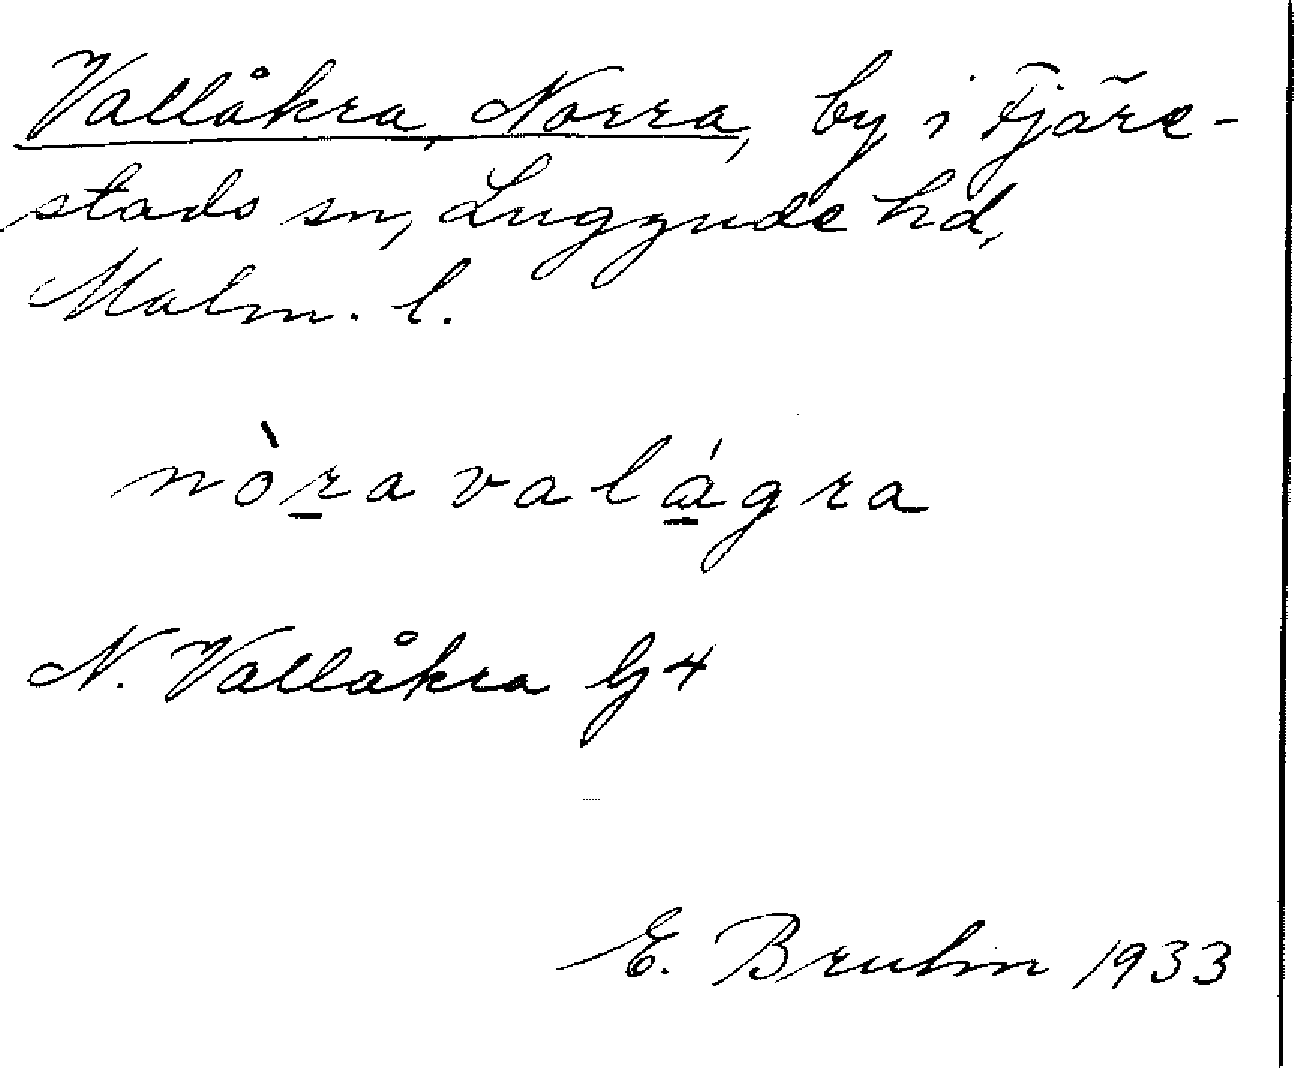 Vallåkra, Norra, by i Fjäre-
stads sn, Luggude hd,
Malm. l.
nòra valágra
N. Vallåkra G4
E. Bruhn 1933